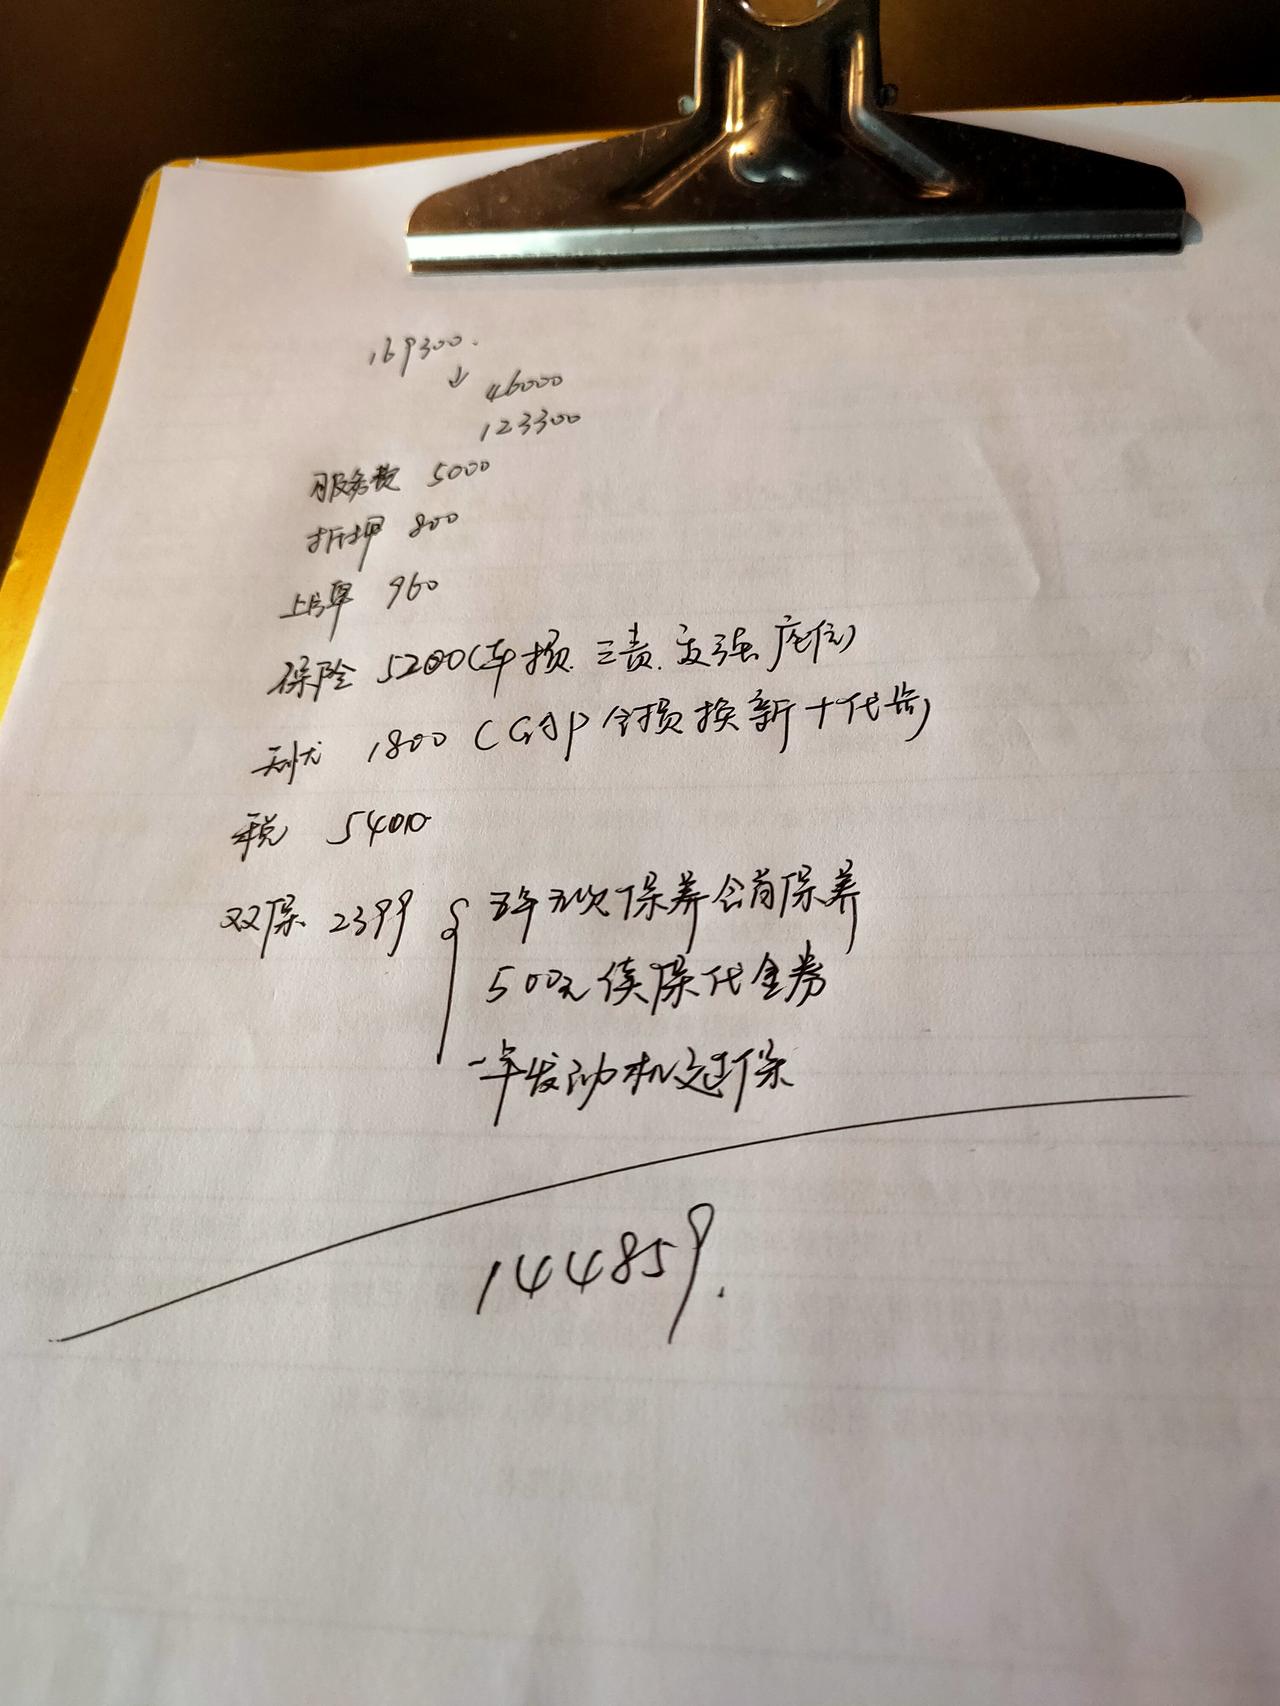 169300.
↓ 46000
123300
服务费 5000
折押 800
上牌 960
保险 5200(车损.三责.交强 座位)
无忧 1800 (GAP 全损换新+代步)
税 5400
双保 2399 { 五年五次保养含首保养
500元续保代金券
一年发动机延保
144859.